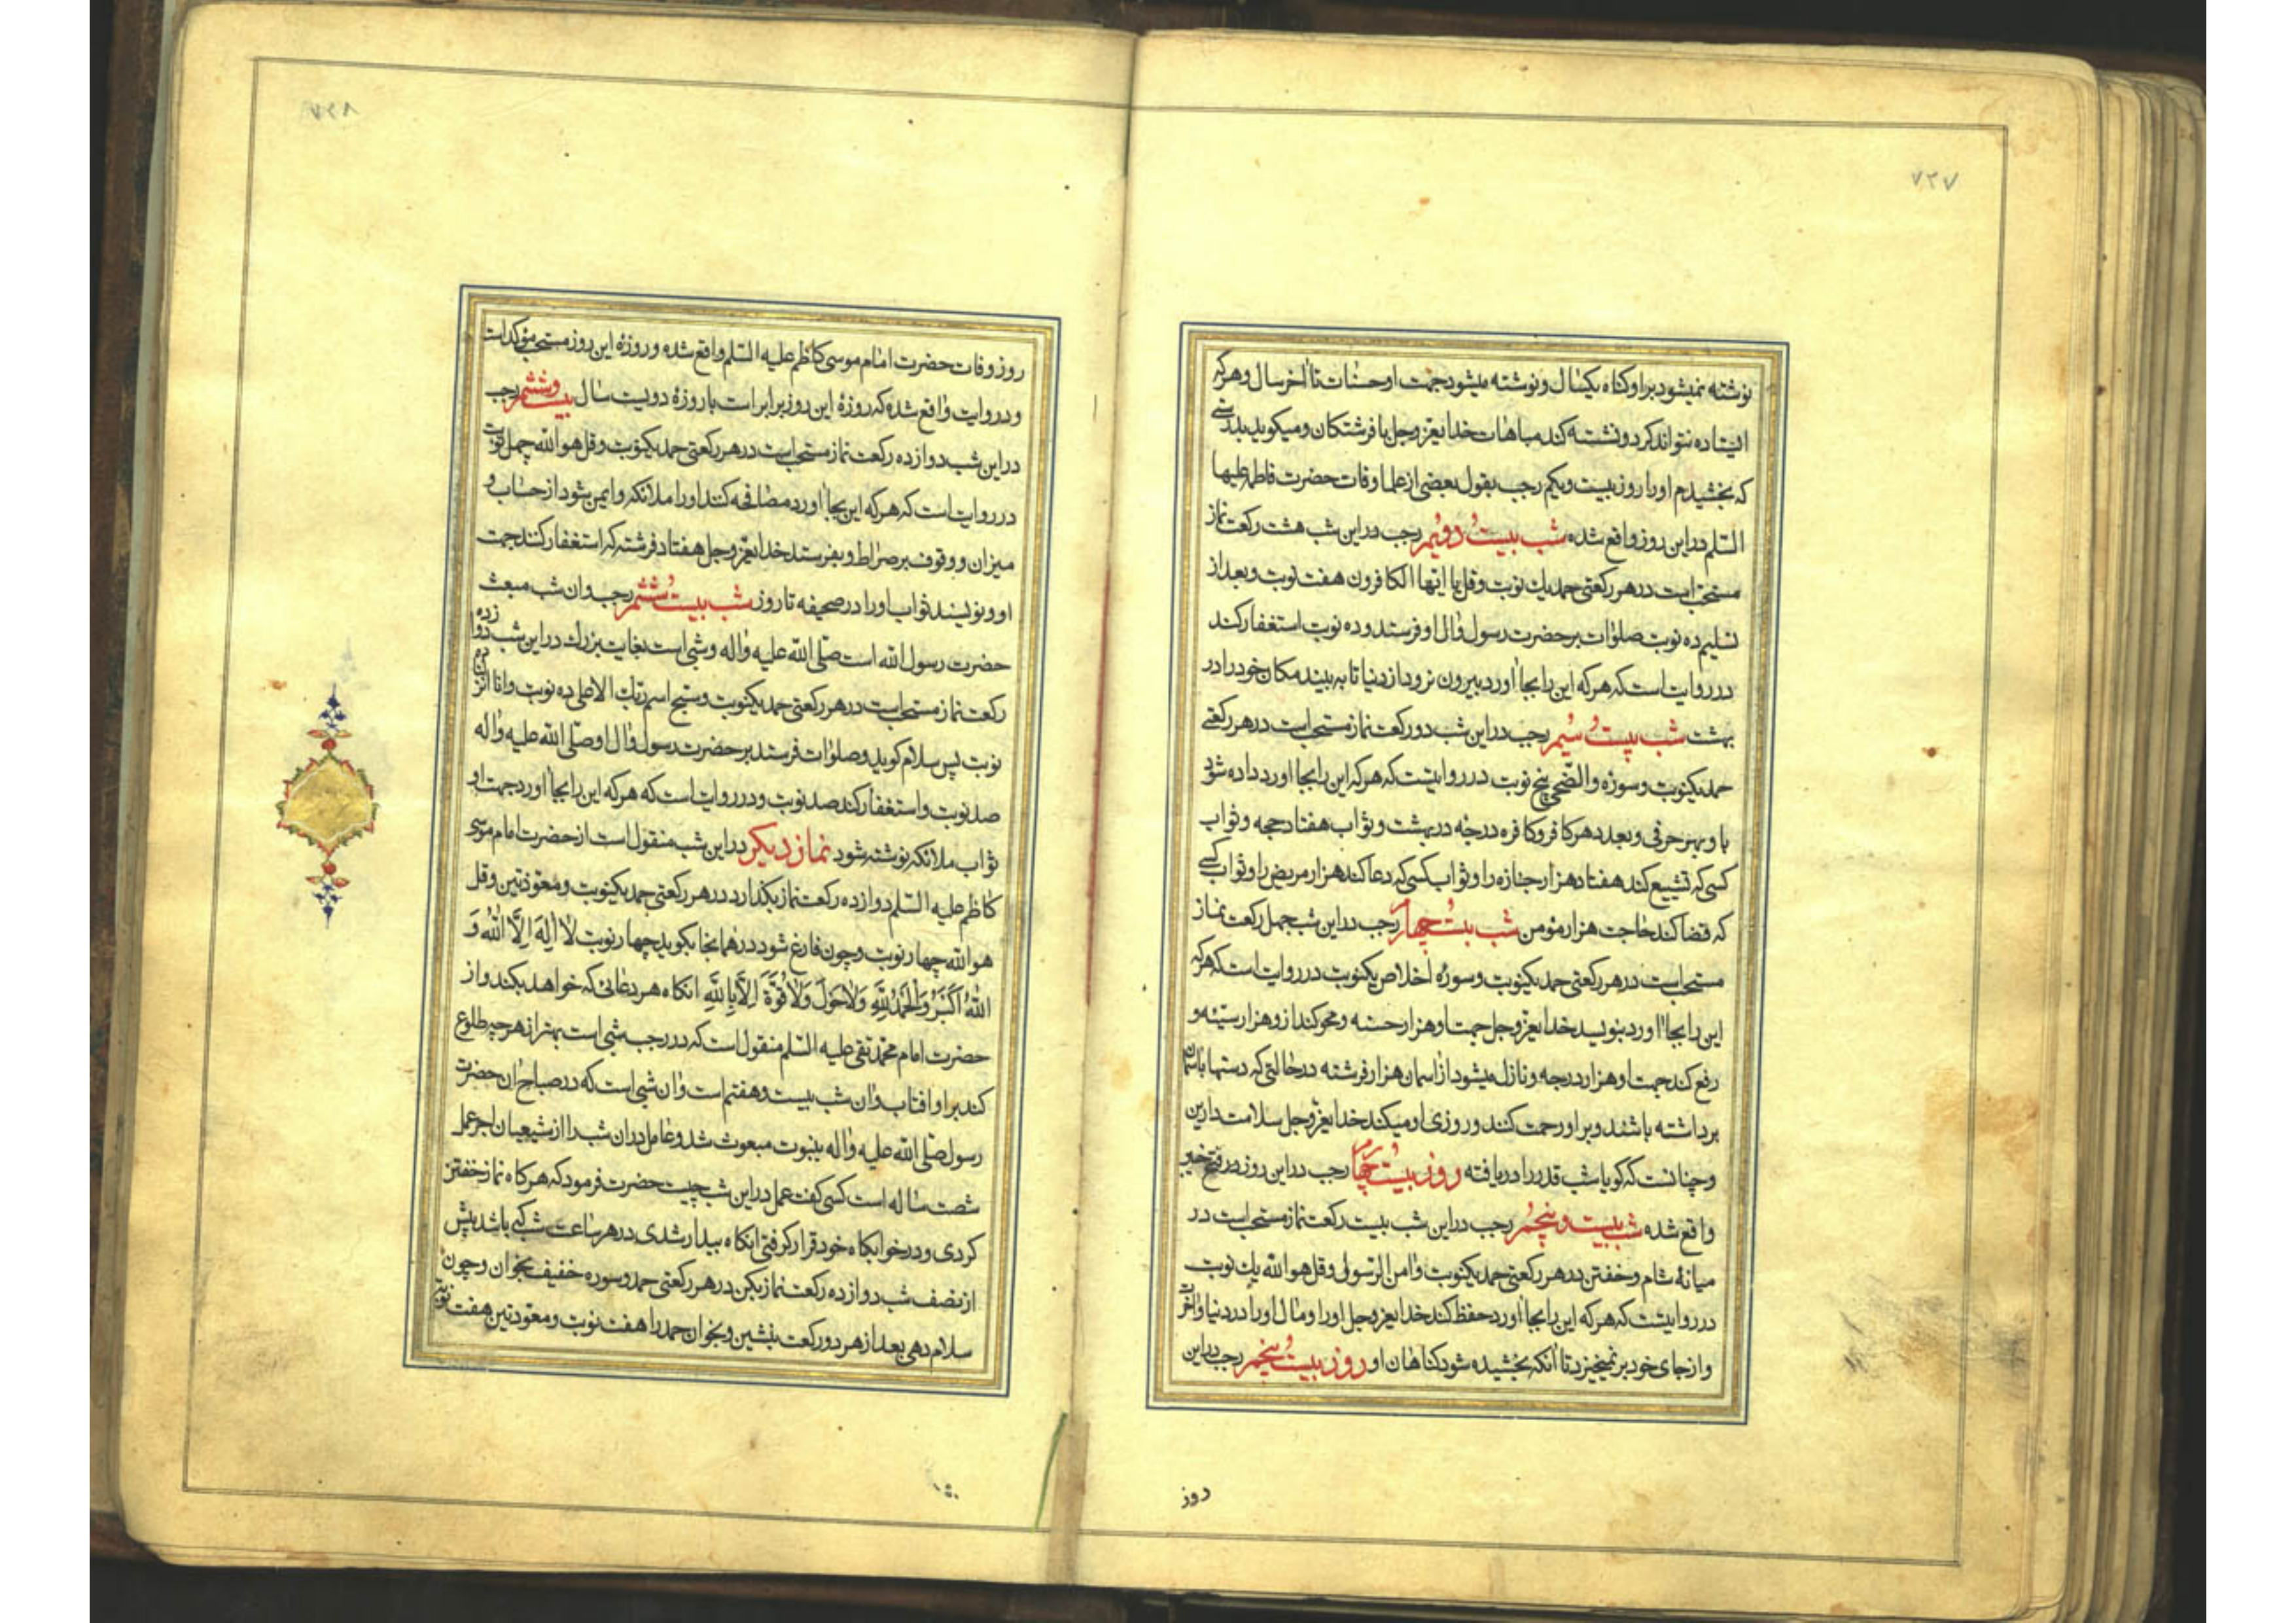 ۷۲۷
نوشته نمیشود براو کناه یکسال و نوشته میشود جهت او حسنات تا آخر سال و هرکه
ایستاده نتواند کرد و نشسته کند مباهات خدایعزوجل با فرشتکان و میکوید بدرستی
که بخشیدم اورا روز بیست ویکم رجب بقول بعضی از علما وفات حضرت فاطمه علیها
السّلم در این روز واقع شده شب بیست و دویم رجب در این شب هشت رکعت نماز
مستحب است در هر رکعتی حمد یك نوبت و قل یا ایها الکافرون هفت نوبت و بعد از
تسلیم ده نوبت صلوات بر حضرت رسول وال او فرستد و ده نوبت استغفار کند
در روایت است که هرکه این را بجا آورد بیرون نرود از دنیا تا به بیند مکان خود را در
بهشت شب بیست و سیم رجب در این شب دو رکعت نماز مستحب است در هر رکعتی
حمد یکنوبت و سورۀ والضّحی پنج نوبت در روایتست که هرکه این را بجا آورد داده شود
باو بهر حرفی و بعدد هر کافر و کافره درجۀ در بهشت و ثواب هفتاد حجه و ثواب
کسی که تشییع کند هفتاد هزار جنازه را و ثواب کسی که دعا کند هزار مریض را و ثواب کسی
که قضا کند حاجت هزار مؤمن شب بیست و چهارم رجب در این شب چهل رکعت نماز
مستحب است در هر رکعتی حمد یکنوبت و سورۀ اخلاص یکنوبت در روایت است که هرکه
این را بجا آورد بنویسد خدایعزوجل جهت او هزار حسنه و محو کند از و هزار سیئه و
رفع کند جهت او هزار درجه و نازل میشود از آسمان هزار فرشته در حالتی که دستها باسمان
برداشته باشند و براو رحمت کنند و روزی او میکند خدایعزّوجل سلامت دارین
و چنانست که کویا شب قدر را دریافته روز بیست و چهارم رجب در این روز در فتح خیبر
واقع شده شب بیست و پنجم رجب در این شب بیست رکعت نماز مستحب است در
میانۀ شام و خفتن در هر رکعتی حمد یکنوبت و امن الرّسول و قل هو الله یك نوبت
در روایتست که هرکه این را بجا آورد حفظ کند خدایعزوجل اورا و مال اورا در دنیا و آخرت
و از جای خود برنمیخیزد تا آنکه بخشیده شود کناهان او روز بیست و پنجم رجب در این
روز
۷۲۸
روز وفات حضرت امام موسی کاظم علیه السّلم واقع شده و روزۀ این روز مستحب مؤکد است
و در روایت واقع شده که روزۀ این روز برابر است با روزۀ دویست سال بیست و ششم رجب
در این شب دوازده رکعت نماز مستحب است در هر رکعتی حمد یکنوبت و قل هو الله چهل نوبت
در روایت است که هرکه این بجا آورد مصافحه کنند اورا ملائکه و ایمن شود از حساب و
میزان و وقوف بر صراط و بفرستد خدایعزّوجل هفتاد فرشته که استغفار کنند جهت
او و نویسند ثواب اورا در صحیفه تا روز شب بیست و ششم رجب و ان شب مبعث
حضرت رسول الله است صلّی الله علیه وآله و شبی است بغایت بزرك در این شب دوازده
رکعت نماز مستحب است در هر رکعتی حمد یکنوبت و سبح اسم ربك الاعلی ده نوبت و انا انزلناه ده
نوبت پس سلام کوید و صلوات فرستد بر حضرت رسول وآل او صلّی الله علیه وآله
صد نوبت و استغفار کند صد نوبت و در روایت است که هرکه این را بجا آورد جهت او
ثواب ملائکه نوشته شود نماز دیکر در این شب منقول است از حضرت امام موسی
کاظم علیه السّلم دوازده رکعت نماز بکذارد در هر رکعتی حمد یکنوبت و معوّذتین و قل
هو الله چهار نوبت و چون فارغ شود در همانجا بکوید چهار نوبت لَا اِلٰهَ اِلَّا اللهُ وَ
اللهُ اَکْبَرُ وَالْحَمْدُ لِلّٰهِ وَلَا حَوْلَ وَلَا قُوَّةَ اِلَّا بِاللهِ انکاه هر دعائی که خواهد بکند و از
حضرت امام محمّد تقی علیه السّلم منقول است که در رجب شبی است بهتر از هرچه طلوع
کند براو افتاب و ان شب بیست و هفتم است و ان شبی است که در صباح ان حضرت
رسول صلّی الله علیه وآله بنبوت مبعوث شد و عامل در ان شب را از شیعیان اجر عمل
شصت ساله است کسی کفت عمل در این شب چیست حضرت فرمود که هرکاه نماز خفتن
کردی و در خوابکاه خود قرار کرفتی انکاه بیدار شدی در هر ساعت شب که باشد پیش
از نصف شب دوازده رکعت نماز بکن در هر رکعتی حمد و سوره خفیف بخوان و چون
سلام دهی بعد از هر دو رکعت بنشین و بخوان حمد را هفت نوبت و معوّذتین هفت نوبت